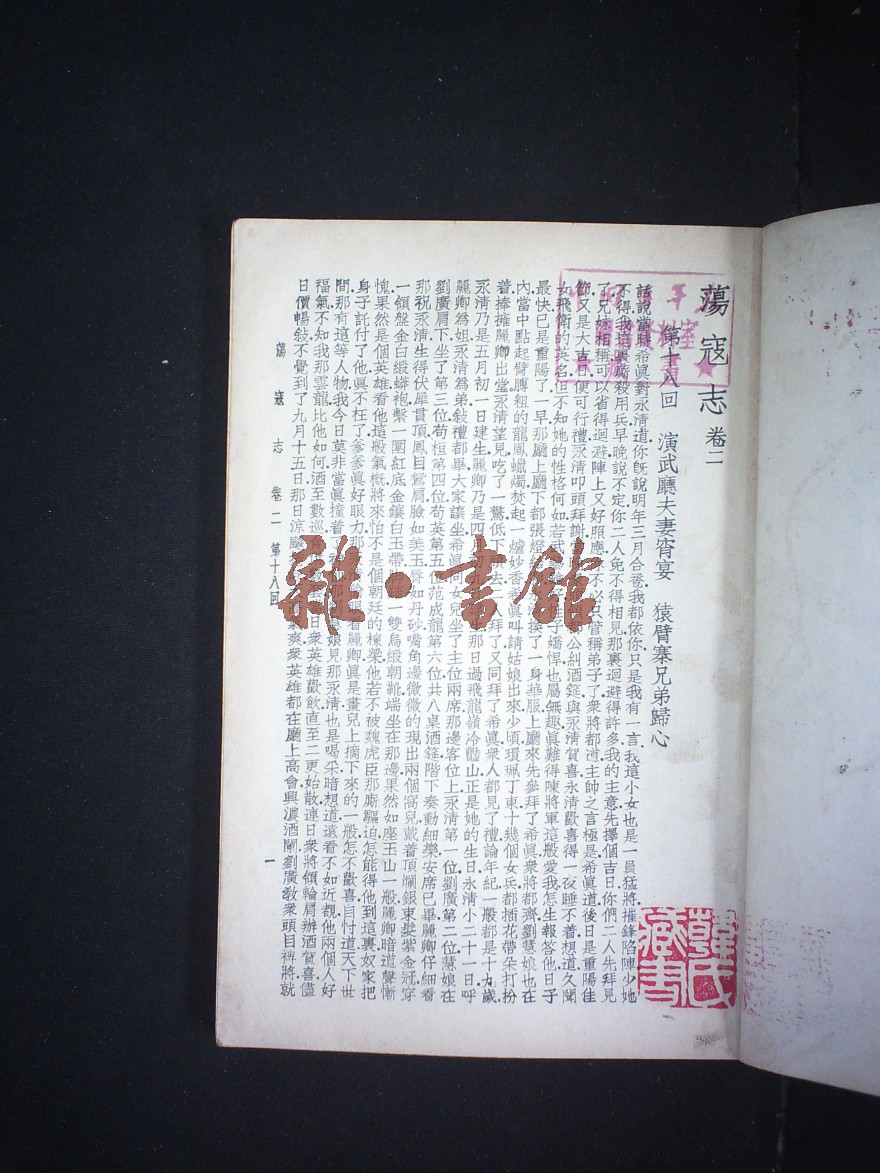 蕩寇志 卷二
第十八回 演武廳夫妻宵宴 猿臂寨兄弟歸心
話說當時希眞對永淸道你旣說明年三月合巹我都依你只是我有一言我這小女也是一員猛將摧鋒陷陣少她
不得我這裏厮殺用兵早晚說不定你二人免不得相見那裏迴避得許多我的主意先擇個吉日你們二人先拜見
了兄妹相稱可以省得迴避陣上又好照應
不以只管稱弟子了衆將都道主帥之言極是希眞道後日是重陽佳
節又是大吉日便可行禮永淸叩頭拜謝
公糾酒筵與永淸賀喜永淸歡喜得一夜睡不着想道久聞
女飛衛的英名但不知她的性格何如若武
子嬌悍也屬無趣眞難得陳將軍這般愛我怎生報答他日子
最快已是重陽了一早那廳上廳下都張燈
換了一身華服上廳來先參拜了希眞衆將都齊劉慧娘也在
內當中點起臂膊粗的龍鳳蠟燭焚起一爐妙香希眞叫請姑娘出來少頃環珮丁東十幾個女兵都插花帶朵打扮
着捧擁麗卿出堂永淸望見吃了一驚低下
去
拜了又同拜了希眞衆人都見了禮論年紀一般都是十九歲
永淸乃是五月初一日建生麗卿乃是四月
那日過飛龍嶺冷豔山正是她的生日永淸小二十一日呼
麗卿爲姐永淸爲弟敍禮都畢大家讓坐希眞同女兒坐了主位兩席那邊客位上永淸第一位劉廣第二位慧娘在
劉廣肩下坐了第三位苟桓第四位苟英第五位范成龍第六位共八桌酒筵階下奏動細樂安席已畢麗卿仔細看
那祝永淸生得伏犀貫頂鳳目鴛肩臉如美玉唇如丹砂嘴角邊微微的現出兩個窩兒戴着頂爛銀束髮紫金冠穿
一領盤金白緞蟒袍繫一圍紅底金鑲白玉帶
一雙烏緞朝靴端坐在那邊果然如座玉山一般麗卿暗道聲慚
愧果然是個英雄看他這般氣概將來怕不是個朝廷的棟梁他若不被魏虎臣那廝驅迫怎能得他到這裏奴家把
身子託付了他眞不枉了爹爹眞好眼力那
看麗卿眞是畫兒上摘下來的一般怎不歡喜自忖道天下世
間那有這等人物我今日莫非當眞撞着
娘見那永淸也是喝采暗想道遠看不如近覩他兩個人好
福氣不知我那雲龍比他如何酒至數巡
日衆英雄歡飮直至二更始散連日衆將領輪肩辦酒賀喜儘
日價暢敍不覺到了九月十五日那日涼
爽衆英雄都在廳上高會興濃酒闌劉廣敎衆頭目裨將就
蕩寇志 卷二 第十八回 一
雜·書館
韓氏藏書